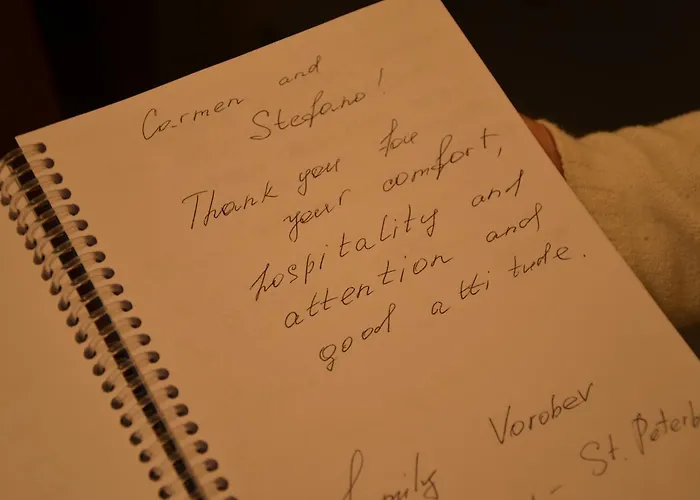 Carmen and
Stefano!
Thank you for
your comfort,
hospitality and
attention and
good attitude.
family Vorobev
St. Peterb